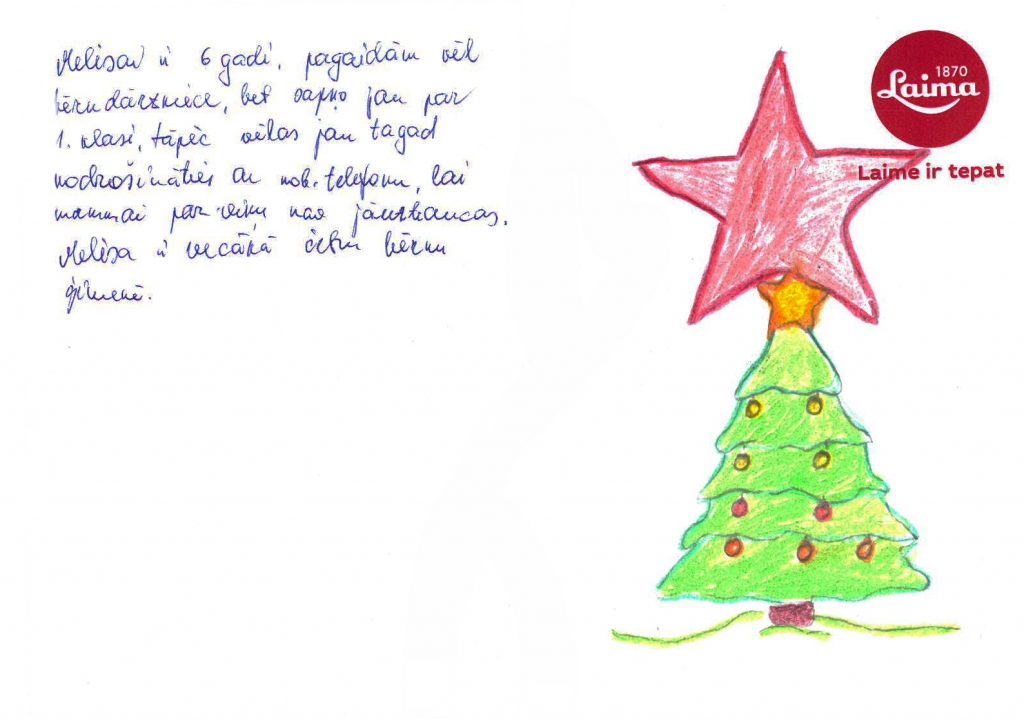 Melisai ir 6 gadi, pagaidām vēl
bērndārzniece, bet sapņo jau par
1. klasi, tāpēc vēlas jau tagad
nodrošināties ar mob. telefonu, lai
mammai par viņu nav jāuztraucas.
Melisa ir vecākā četru bērnu
ģimenē.
1870
Laima
Laime ir tepat